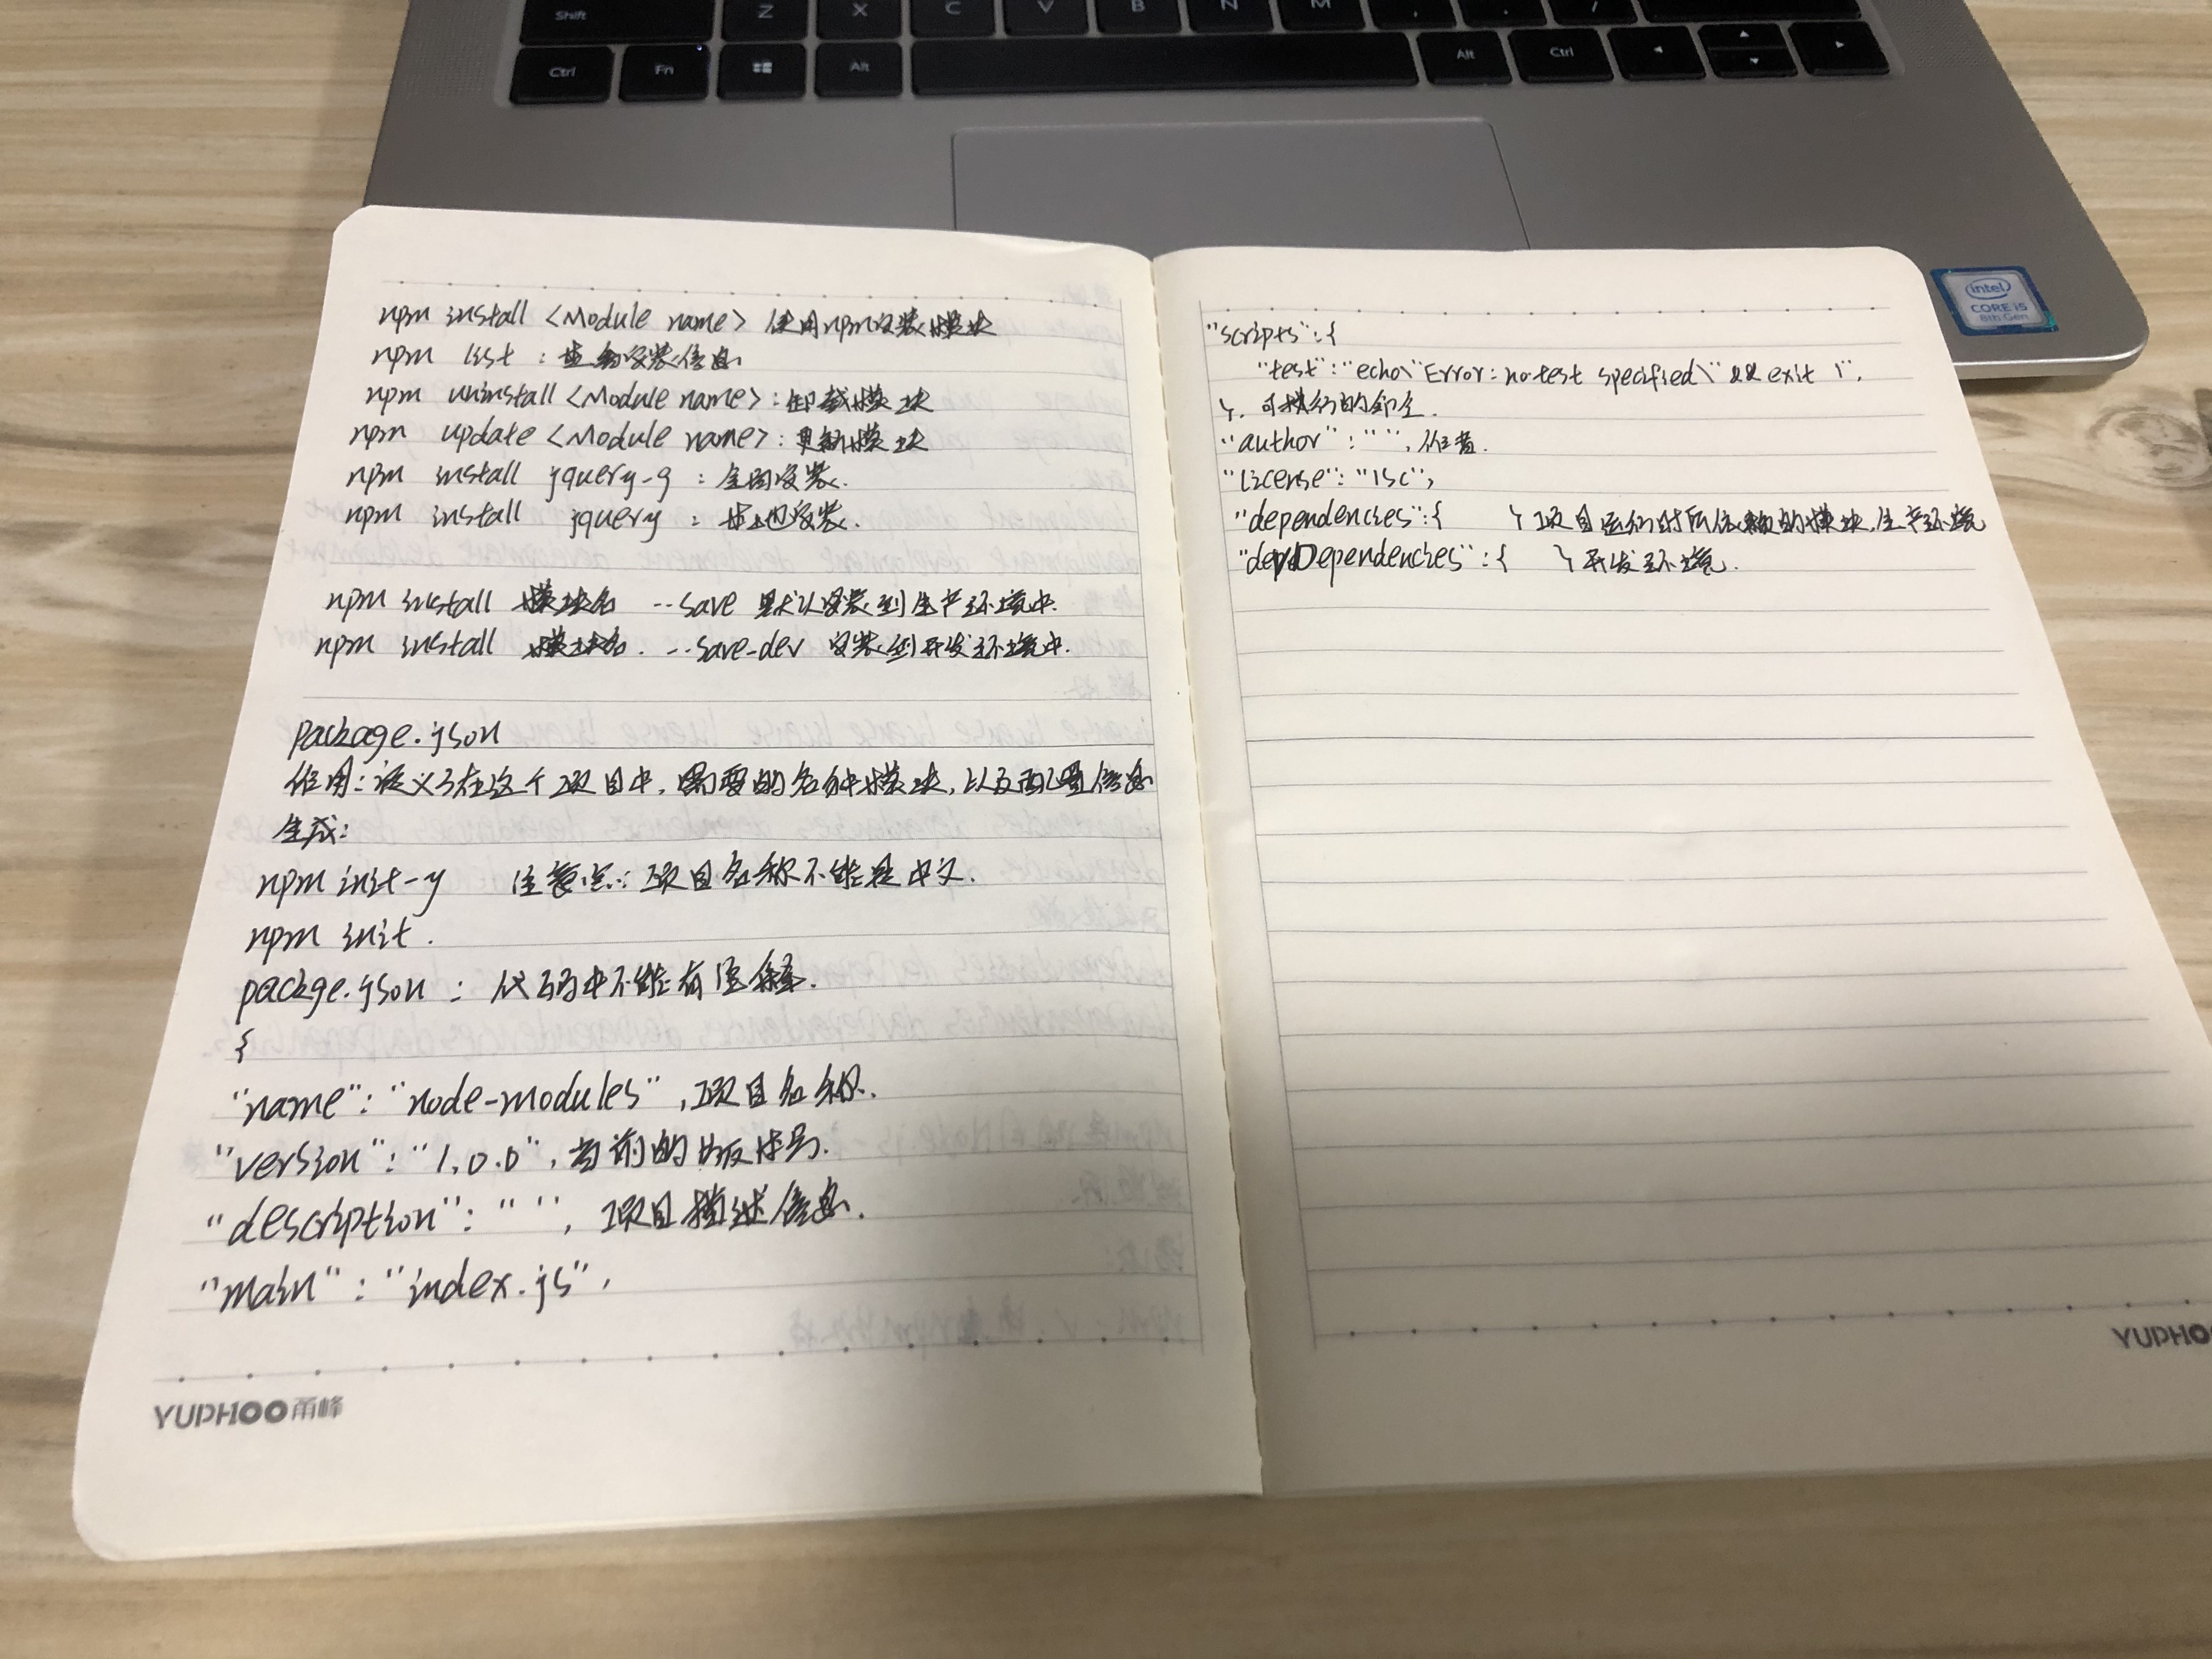 Shift Z X C V B N M , . /
Ctrl Fn Alt Alt Ctrl
intel
CORE i5
8th Gen
npm install <Module name> 使用npm安装模块
npm list : 查看安装信息
npm uninstall <Module name> : 卸载模块
npm update <Module name> : 更新模块
npm install jquery-g : 全局安装.
npm install jquery : 本地安装.
npm install 模块名 --save 默认安装到生产环境中.
npm install 模块名. --save-dev 安装到开发环境中.
package.json
作用:定义了在这个项目中,需要的各种模块,以及配置信息
生成:
npm init-y 注意点:项目名称不能是中文.
npm init.
packge.json : 代码中不能有注释.
{
"name": "node-modules", 项目名称.
"version": "1.0.0", 当前的版本号.
"description": " ", 项目描述信息.
"main": "index.js",
YUPHOO甬峰
"scripts": {
"test": "echo\"Error: no test specified\" && exit 1",
}, 可执行的命令.
"author": " ", 作者.
"license": "ISC",
"dependencies": { } 项目运行时所依赖的模块,生产环境
"devDependencies": { } 开发环境.
YUPHO